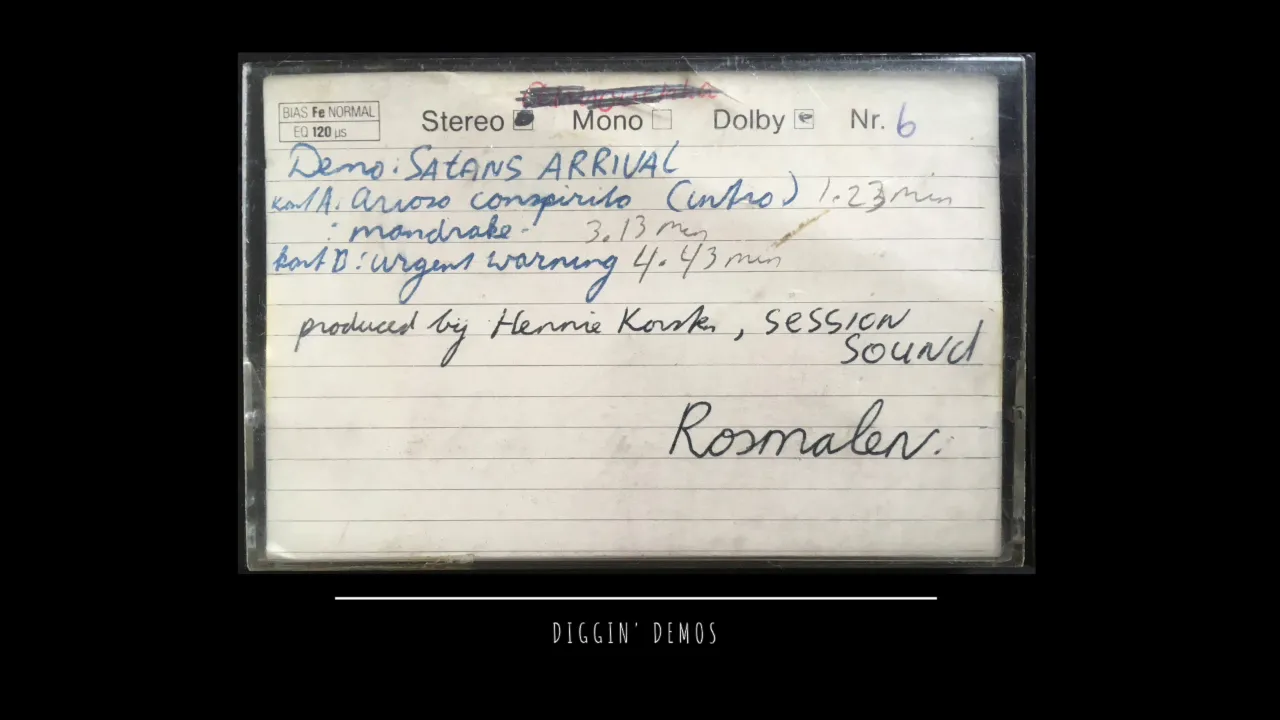 BIAS Fe NORMAL
EQ 120 µs
Stereo Mono Dolby Nr. 6
Demo: SAtANS ARRIVAL
kant A: arioso conspirito (intro) 1.23 min
: mandrake - 3.13 min
kant B: urgent warning 4.43 min
produced by Hennie, SESSION
SOUNd
Rosmalen.
DIGGIN' DEMOS